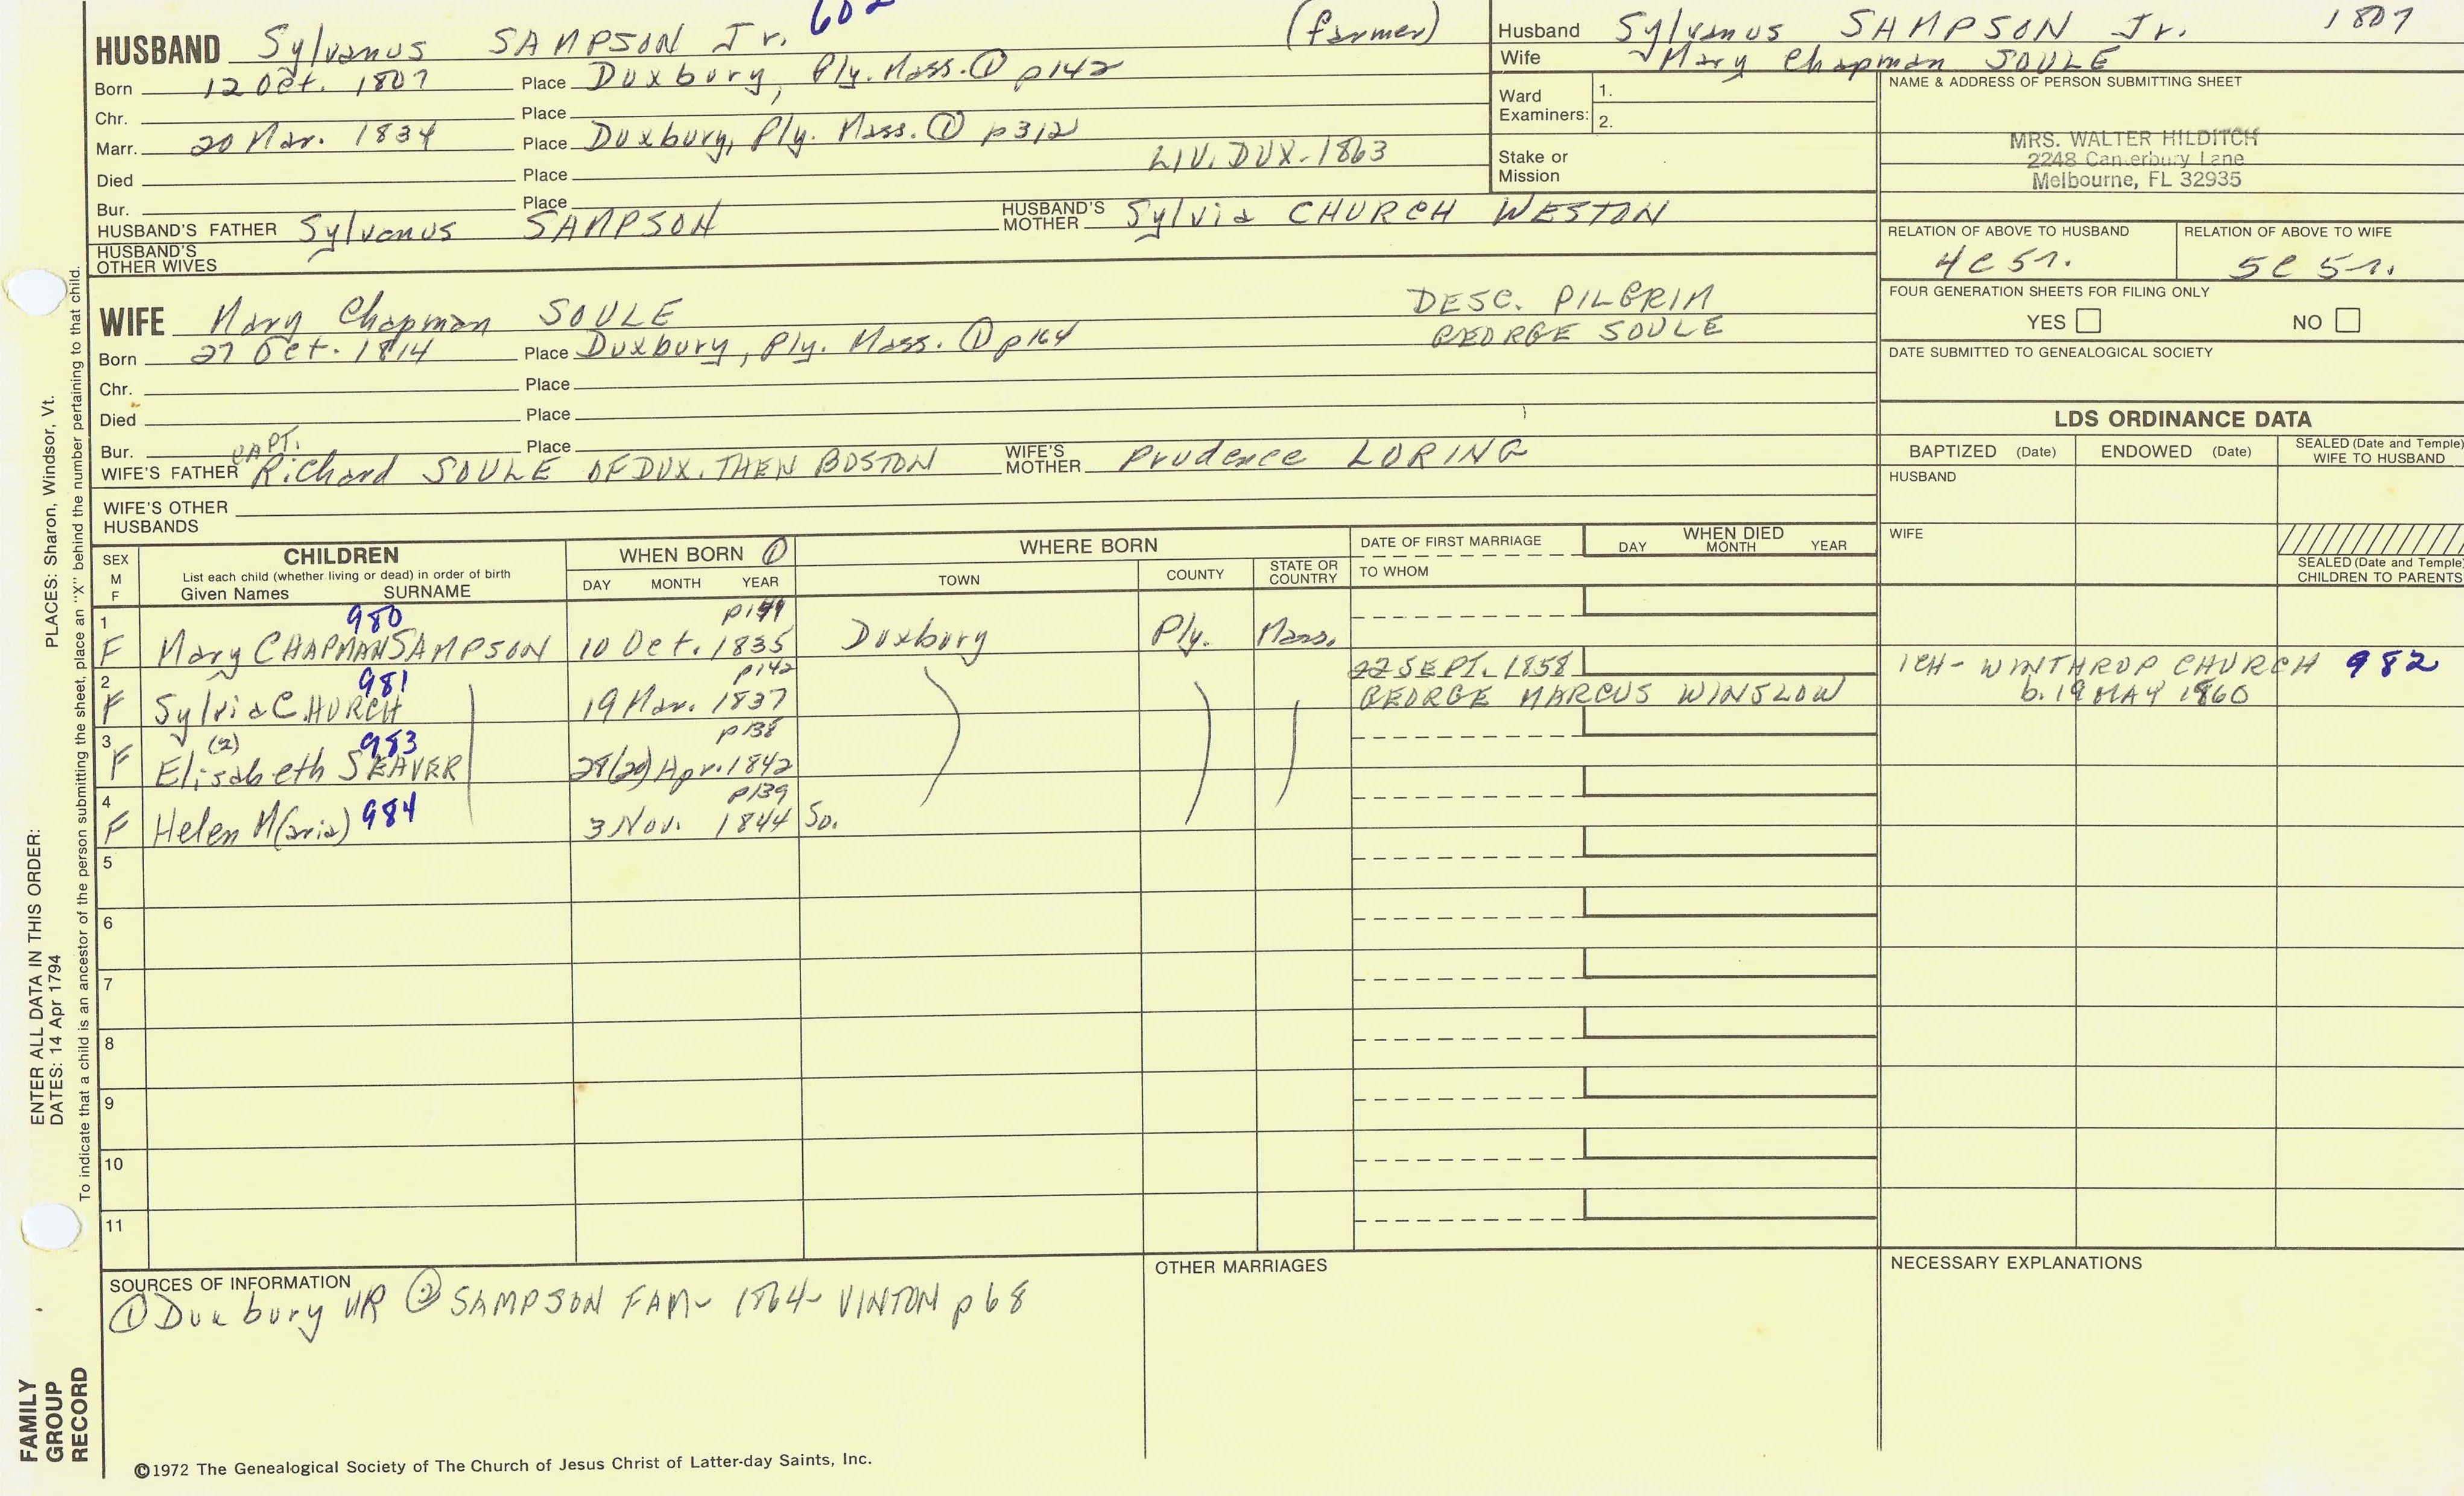 602
HUSBAND Sylvanus SAMPSON Jr. (farmer)
Born 12 Oct. 1807 Place Duxbury, Ply. Mass. ① p142
Chr. Place
Marr. 20 Mar. 1834 Place Duxbury, Ply. Mass. ① p312
LIV. DUX-1863
Died Place
Bur. Place
HUSBAND'S FATHER Sylvanus SAMPSON HUSBAND'S MOTHER Sylvia CHURCH WESTON
HUSBAND'S OTHER WIVES
Husband Sylvanus SAMPSON Jr. 1807
Wife Mary Chapman SOULE
Ward Examiners: 1.
2.
Stake or Mission
NAME & ADDRESS OF PERSON SUBMITTING SHEET
MRS. WALTER HILDITCH
2248 Canterbury Lane
Melbourne, FL 32935
RELATION OF ABOVE TO HUSBAND RELATION OF ABOVE TO WIFE
4C 5r. 5C 5r.
FOUR GENERATION SHEETS FOR FILING ONLY
YES NO
DATE SUBMITTED TO GENEALOGICAL SOCIETY
WIFE Mary Chapman SOULE
DESC. PILGRIM
GEORGE SOULE
Born 27 Oct. 1814 Place Duxbury, Ply. Mass. ① p164
Chr. Place
Died Place
Bur. Place
CAPT.
WIFE'S FATHER Richard SOULE OF DUX. THEN BOSTON WIFE'S MOTHER Prudence LORING
WIFE'S OTHER HUSBANDS
LDS ORDINANCE DATA
BAPTIZED (Date) ENDOWED (Date) SEALED (Date and Temple) WIFE TO HUSBAND
HUSBAND
WIFE
SEALED (Date and Temple) CHILDREN TO PARENTS
SEX M F
CHILDREN
List each child (whether living or dead) in order of birth
Given Names SURNAME
WHEN BORN ①
DAY MONTH YEAR
WHERE BORN
TOWN COUNTY STATE OR COUNTRY
DATE OF FIRST MARRIAGE
TO WHOM
WHEN DIED
DAY MONTH YEAR
980
1 F Mary CHAPMAN SAMPSON 10 Oct. 1835 Duxbury Ply. Mass.
981 p142 22 SEPT. 1858 1CH- WINTHROP CHURCH 982
2 F Sylvia CHURCH 19 Mar. 1837 GEORGE MARCUS WINSLOW b. 19 MAY 1860
(2) 983 p138
3 F Elisabeth SEAVER 28(20) Apr. 1842
p139
4 F Helen M(aria) 984 3 Nov. 1844 So.
5
6
7
8
9
10
11
SOURCES OF INFORMATION
① Duxbury VR ② SAMPSON FAM- 1864- VINTON p68
OTHER MARRIAGES
NECESSARY EXPLANATIONS
©1972 The Genealogical Society of The Church of Jesus Christ of Latter-day Saints, Inc.
FAMILY GROUP RECORD
ENTER ALL DATA IN THIS ORDER:
DATES: 14 Apr 1794
PLACES: Sharon, Windsor, Vt.
To indicate that a child is an ancestor of the person submitting the sheet, place an "X" behind the number pertaining to that child.